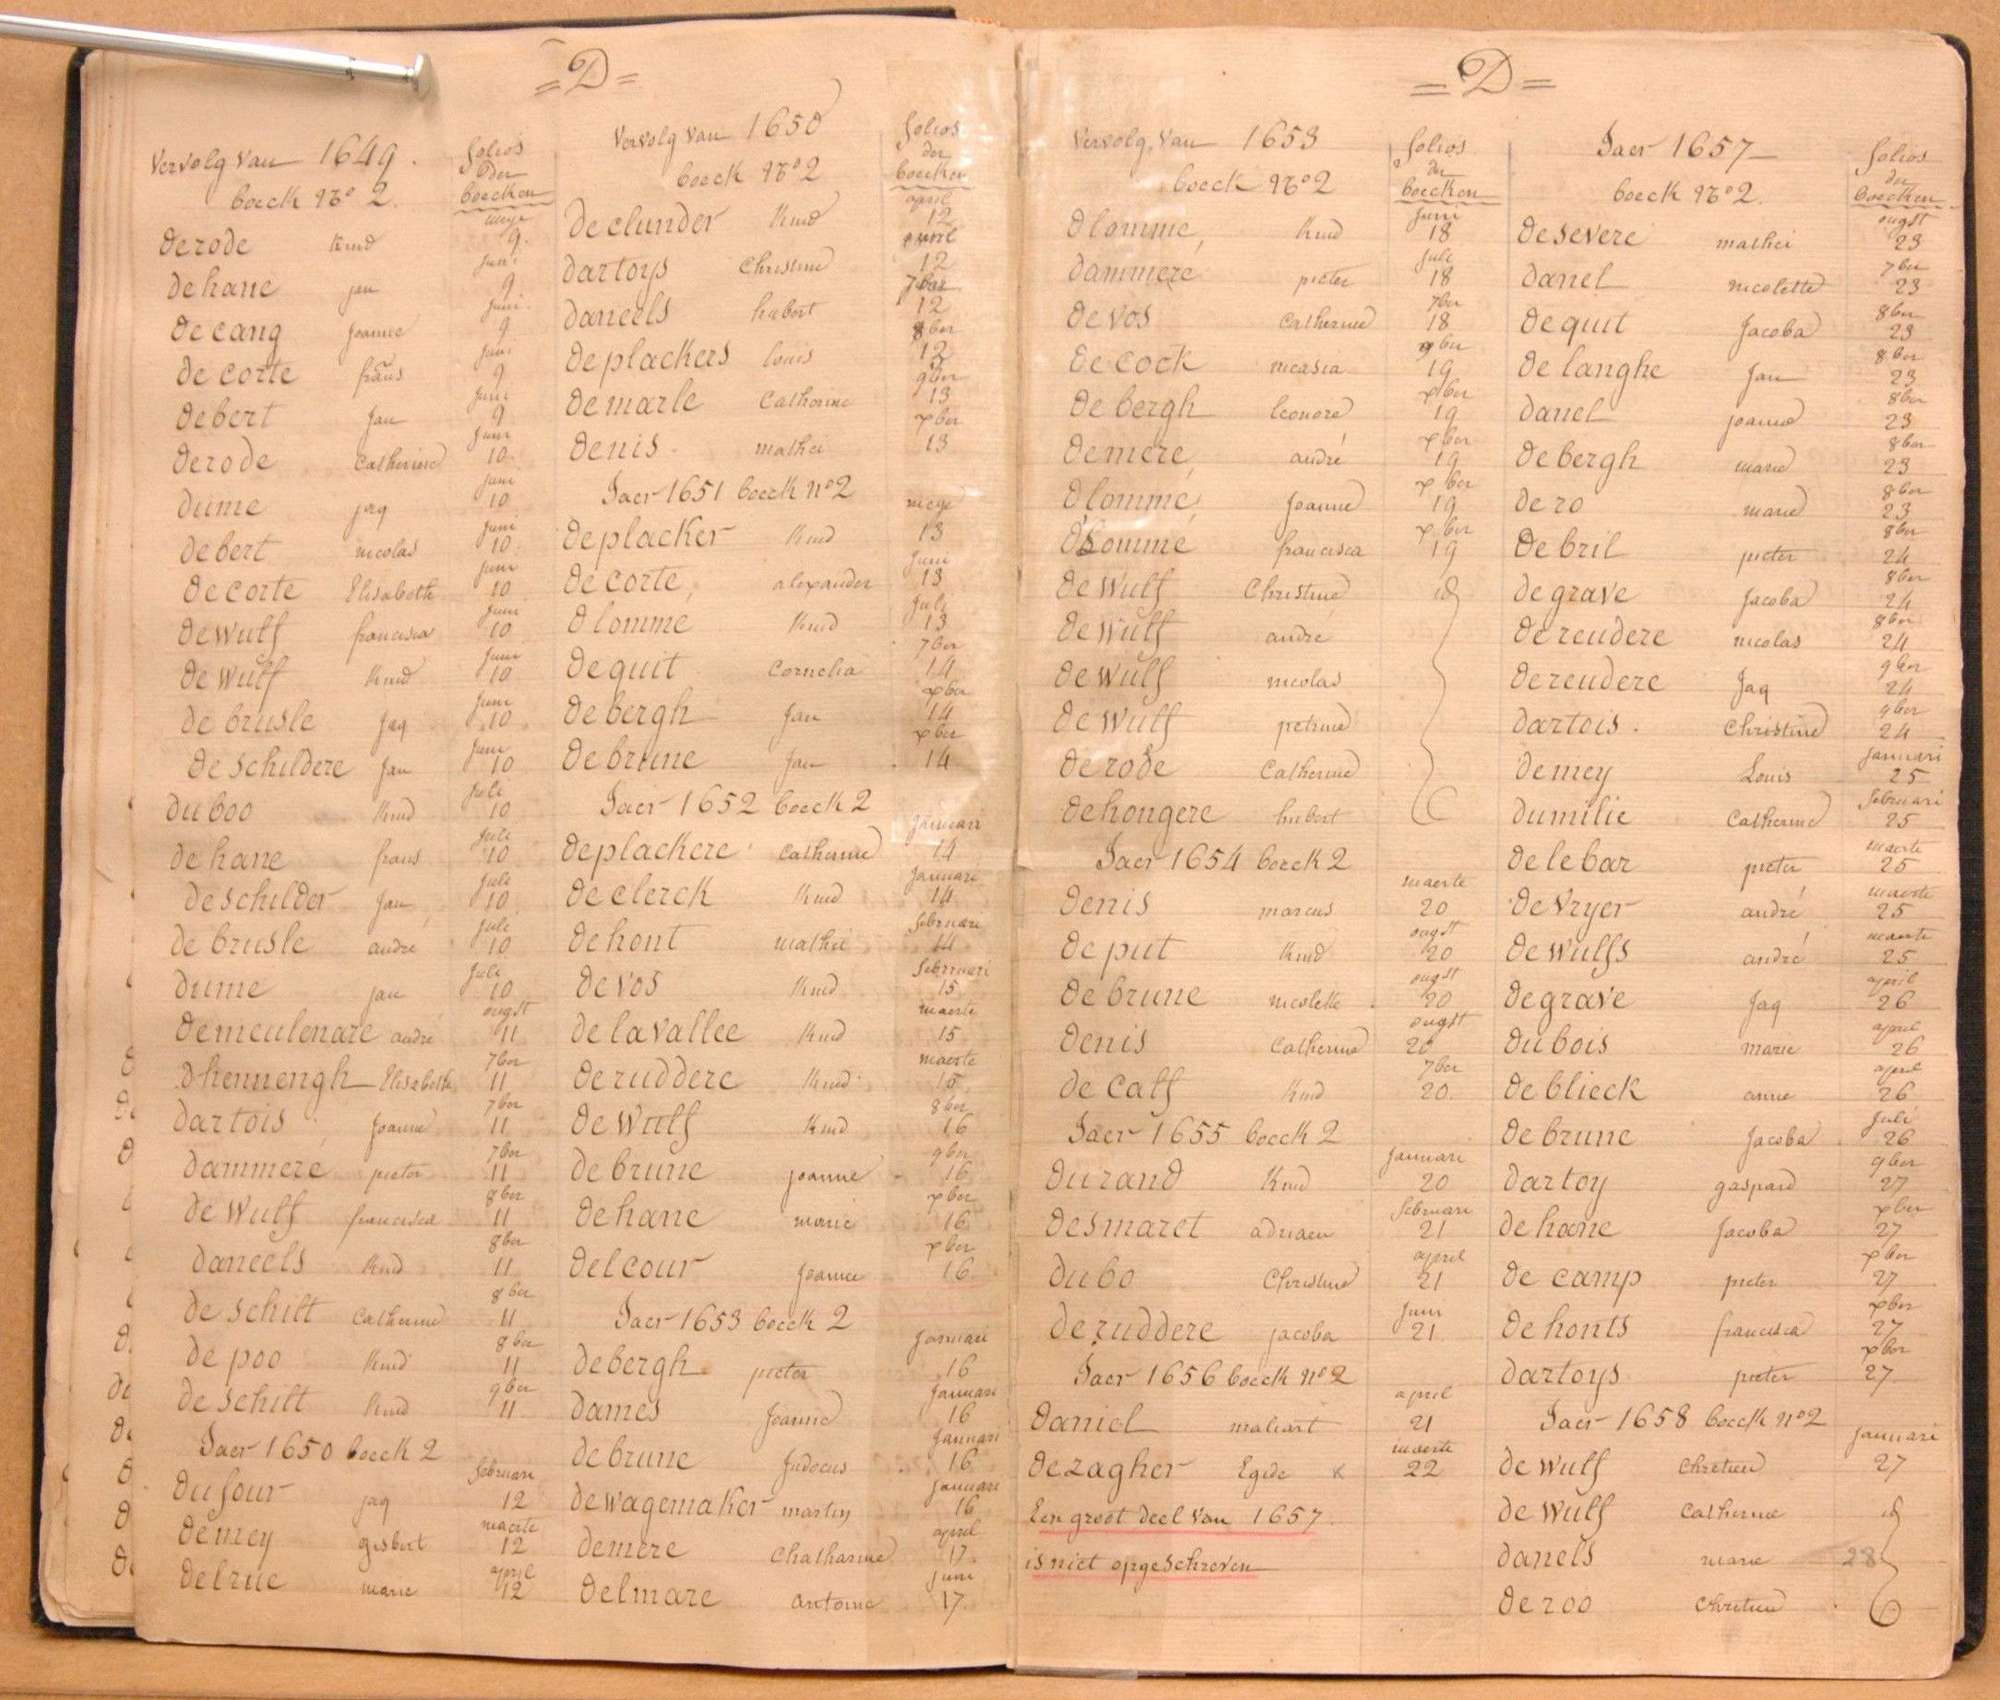 = D =
Vervolg van 1649.
boeck No 2.
folios der boecken
derode kind meye 9.
dehane jan juni 9
decang Joanne juni 9
decorte frans juni 9
debert Jan juni 9
derode Catherine juni 10
dume jaq juni 10
debert nicolas juni 10
decorte Elisabeth juni 10
dewulf francisca juni 10
dewulf kind juni 10
debrusle Jaq juni 10
deschildere Jan juni 10
duboo kind juli 10
dehane frans juli 10
deschilder Jan juli 10
debrusle andre juli 10
dume jan juli 10
demeulenare andre ougst 11
dhennengh Elisabeth 7ber 11
dartois Joanne 7ber 11
dammere pieter 7ber 11
dewulf francisca 8ber 11
daneels kind 8ber 11
deschilt Catherine 8ber 11
depoo kind 8ber 11
deschilt kind 9ber 11
Jaer 1650 boeck 2
dufour jaq februari 12
demey gisbert maerte 12
delrue marie april 12
Vervolg van 1650
boeck No 2
folios der boecken
declunder kind april 12
dartoys Christine april 12
daneels hubert 7ber 12
deplackers louis 8ber 12
demarle Catherine 9ber 13
denis mathei xber 13
Jaer 1651 boeck no 2
deplacker kind meye 13
decorte, alexander juni 13
dlomme kind juli 13
dequit Cornelia 7ber 14
debergh Jan xber 14
debrune Jan xber 14
Jaer 1652 boeck 2
deplackere Catherine januari 14
declerck kind januari 14
dehont mathie februari 14
devos kind februari 15
delavallee kind maerte 15
deruddere kind maerte 15
dewulf kind 8ber 16
debrune joanne 9ber 16
dehane marie xber 16
delcour Joanne xber 16
Jaer 1653 boeck 2
debergh pieter januari 16
dames Joanne januari 16
debrune Judocus januari 16
dewagemaker martin januari 16
demere Chatharine april 17
delmare antoine juni 17
= D =
Vervolg van 1653
boeck No 2
folios der boecken
dlomme, kind juni 18
dammere pieter juli 18
devos Catherine 7ber 18
decock nicasia 9ber 19
debergh leonore xber 19
demere, andré xber 19
dlomme, Joanne xber 19
dlomme francisca xber 19
dewulf Christine id
dewulf andre
dewulf nicolas
dewulf petrine
derode Catherine
dehongere hubert
Jaer 1654 boeck 2
denis marcus maerte 20
deput kind ougst 20
debrune nicolette ougst 20
denis Catherine ougst 20
decalf kind 7ber 20
Jaer 1655 boeck 2
durand kind januari 20
desmaret adriaen februari 21
dubo Christine april 21
deruddere jacoba juni 21
Jaer 1656 boeck no 2
daniel maliart april 21
dezagher Egide x maerte 22
Een groot deel van 1657.
is niet opgeschreven
Jaer 1657
boeck No 2.
folios der boecken
desevere mathei ougst 23
danel nicolette 7ber 23
dequit Jacoba 8ber 23
delanghe Jan 8ber 23
danel joanne 8ber 23
debergh marie 8ber 23
dero marie 8ber 23
debril pieter 8ber 24
degrave Jacoba 8ber 24
dereudere nicolas 8ber 24
dereudere Jaq 9ber 24
dartois. Christine 9ber 24
demey Louis januari 25
dumilie Catherine februari 25
delebar pieter maerte 25
devryer andré maerte 25
dewulfs andré maerte 25
degrave Jaq april 26
dubois marie april 26
deblieck anne april 26
debrune Jacoba juli 26
dartoy gaspard 9ber 27
dehane Jacoba xber 27
decamp pieter xber 27
dehonts francisca xber 27
dartoys pieter xber 27
Jaer 1658 boeck no 2
dewulf Chretien januari 27
dewulf Catherine id
danels marie 28
deroo Chretien